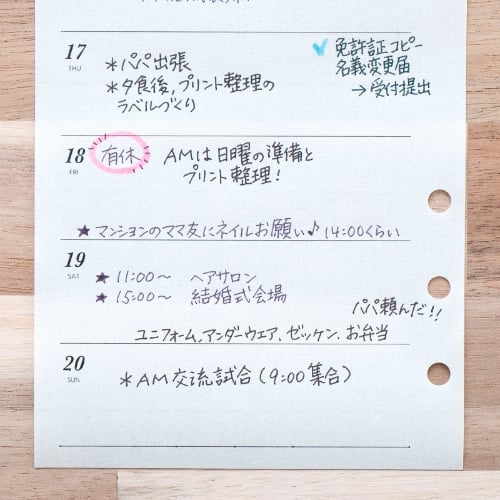 17
THU
*パパ出張
*夕食後,プリント整理の
ラベルづくり
免許証コピー
名義変更届
→受付提出
18
FRI
有休
AMは日曜の準備と
プリント整理!
★マンションのママ友にネイルお願い♪14:00くらい
19
SAT
★11:00〜 ヘアサロン
★15:00〜 結婚式会場
パパ頼んだ!!
ユニフォーム,アンダーウェア、ゼッケン、お弁当
20
SUN
*AM交流試合(9:00集合)